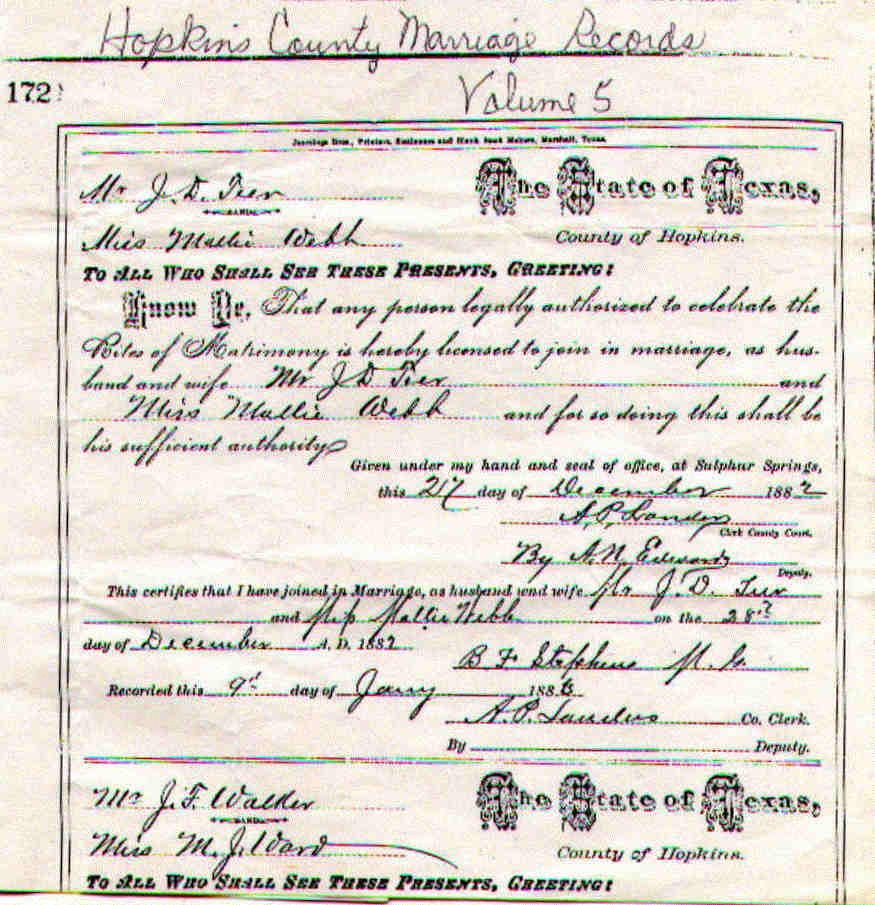 Hopkins County Marriage Records
172
Volume 5
Jennings Bros., Printers, Stationers and Blank Book Makers, Marshall, Texas.
Mr J. D. Teer
AND
Miss Mallie Webb
The State of Texas,
County of Hopkins.
TO ALL WHO SHALL SEE THESE PRESENTS, GREETING:
Know Ye, That any person legally authorized to celebrate the
Rites of Matrimony is hereby licensed to join in marriage, as hus-
band and wife Mr J D Teer and
Miss Mallie Webb and for so doing this shall be
his sufficient authority
Given under my hand and seal of office, at Sulphur Springs,
this 27 day of December 1882
A. P. Landers
Clerk County Court.
By A. N. Edwards
Deputy.
This certifies that I have joined in Marriage, as husband and wife Mr J. D. Teer
and Miss Mallie Webb on the 28th
day of December A. D. 1882
B F Stephens M. G.
Recorded this 9th day of Jany 1883
A. P. Landers Co. Clerk.
By Deputy.
Mr J. F. Walker
AND
Miss M. J. Ward
The State of Texas,
County of Hopkins.
TO ALL WHO SHALL SEE THESE PRESENTS, GREETING: